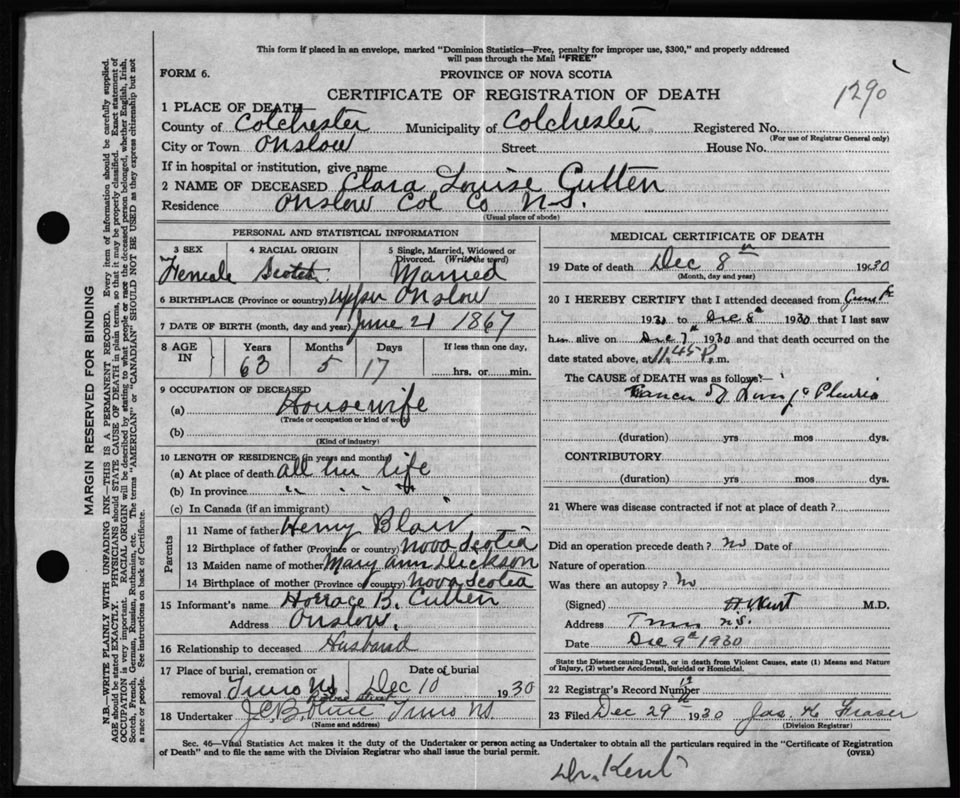 This form if placed in an envelope, marked "Dominion Statistics—Free, penalty for improper use, $300," and properly addressed
will pass through the Mail "FREE"
FORM 6.
PROVINCE OF NOVA SCOTIA
1290
CERTIFICATE OF REGISTRATION OF DEATH
1 PLACE OF DEATH
County of Colchester Municipality of Colchester Registered No.
(For use of Registrar General only)
City or Town Onslow Street House No.
If in hospital or institution, give name
2 NAME OF DECEASED Clara Louise Cutten
Residence Onslow Col Co N.S.
(Usual place of abode)
PERSONAL AND STATISTICAL INFORMATION
3 SEX 4 RACIAL ORIGIN 5 Single, Married, Widowed or
Divorced. (Write the word)
Female Scotch Married
6 BIRTHPLACE (Province or country) Upper Onslow
7 DATE OF BIRTH (month, day and year) June 21 1867
8 AGE IN Years Months Days If less than one day,
63 5 17 hrs. or min.
9 OCCUPATION OF DECEASED
(a) Housewife
(Trade or occupation or kind of work)
(b)
(Kind of industry)
10 LENGTH OF RESIDENCE (in years and months)
(a) At place of death all her life
(b) In province " " "
(c) In Canada (if an immigrant)
Parents
11 Name of father Henry Blair
12 Birthplace of father (Province or country) Nova Scotia
13 Maiden name of mother Mary Ann Dickson
14 Birthplace of mother (Province or country) Nova Scotia
15 Informant's name Horrace B. Cutten
Address Onslow.
16 Relationship to deceased Husband
17 Place of burial, cremation or Date of burial
removal Truro NS Dec 10 1930
18 Undertaker Truro NS.
(Name and address)
MEDICAL CERTIFICATE OF DEATH
19 Date of death Dec 8th 1930
(Month, day and year)
20 I HEREBY CERTIFY that I attended deceased from
1930 to Dec 8th 1930 that I last saw
h alive on Dec 7th 1930 and that death occurred on the
date stated above, at 11.45 P. m.
The CAUSE of DEATH was as follows:—
Cancer of Lung
(duration) yrs mos dys.
CONTRIBUTORY
(duration) yrs mos dys.
21 Where was disease contracted if not at place of death?
Did an operation precede death? No Date of
Nature of operation
Was there an autopsy? No
(Signed) Kent M.D.
Address Truro N.S.
Date Dec 9th 1930
State the Disease causing Death, or in death from Violent Causes, state (1) Means and Nature
of Injury, (2) whether Accidental, Suicidal or Homicidal.
22 Registrar's Record Number 12
23 Filed Dec 29th 1930 Jas. K. Fraser
(Division Registrar)
Sec. 46—Vital Statistics Act makes it the duty of the Undertaker or person acting as Undertaker to obtain all the particulars required in the "Certificate of Registration
of Death" and to file the same with the Division Registrar who shall issue the burial permit.
(OVER)
Dr. Kent
MARGIN RESERVED FOR BINDING
N.B—WRITE PLAINLY WITH UNFADING INK—THIS IS A PERMANENT RECORD. Every item of information should be carefully supplied.
AGE should be stated EXACTLY. PHYSICIANS should STATE CAUSE OF DEATH in plain terms, so that it may be properly classified. Exact statement of
OCCUPATION is very important. RACIAL ORIGIN will be described by stating to what people or race the deceased person belonged, whether English, Irish,
Scotch, French, German, Russian, Ruthenian, etc. The terms "AMERICAN" or "CANADIAN" SHOULD NOT BE USED as they express citizenship but not
a race or people. See instructions on back of Certificate.